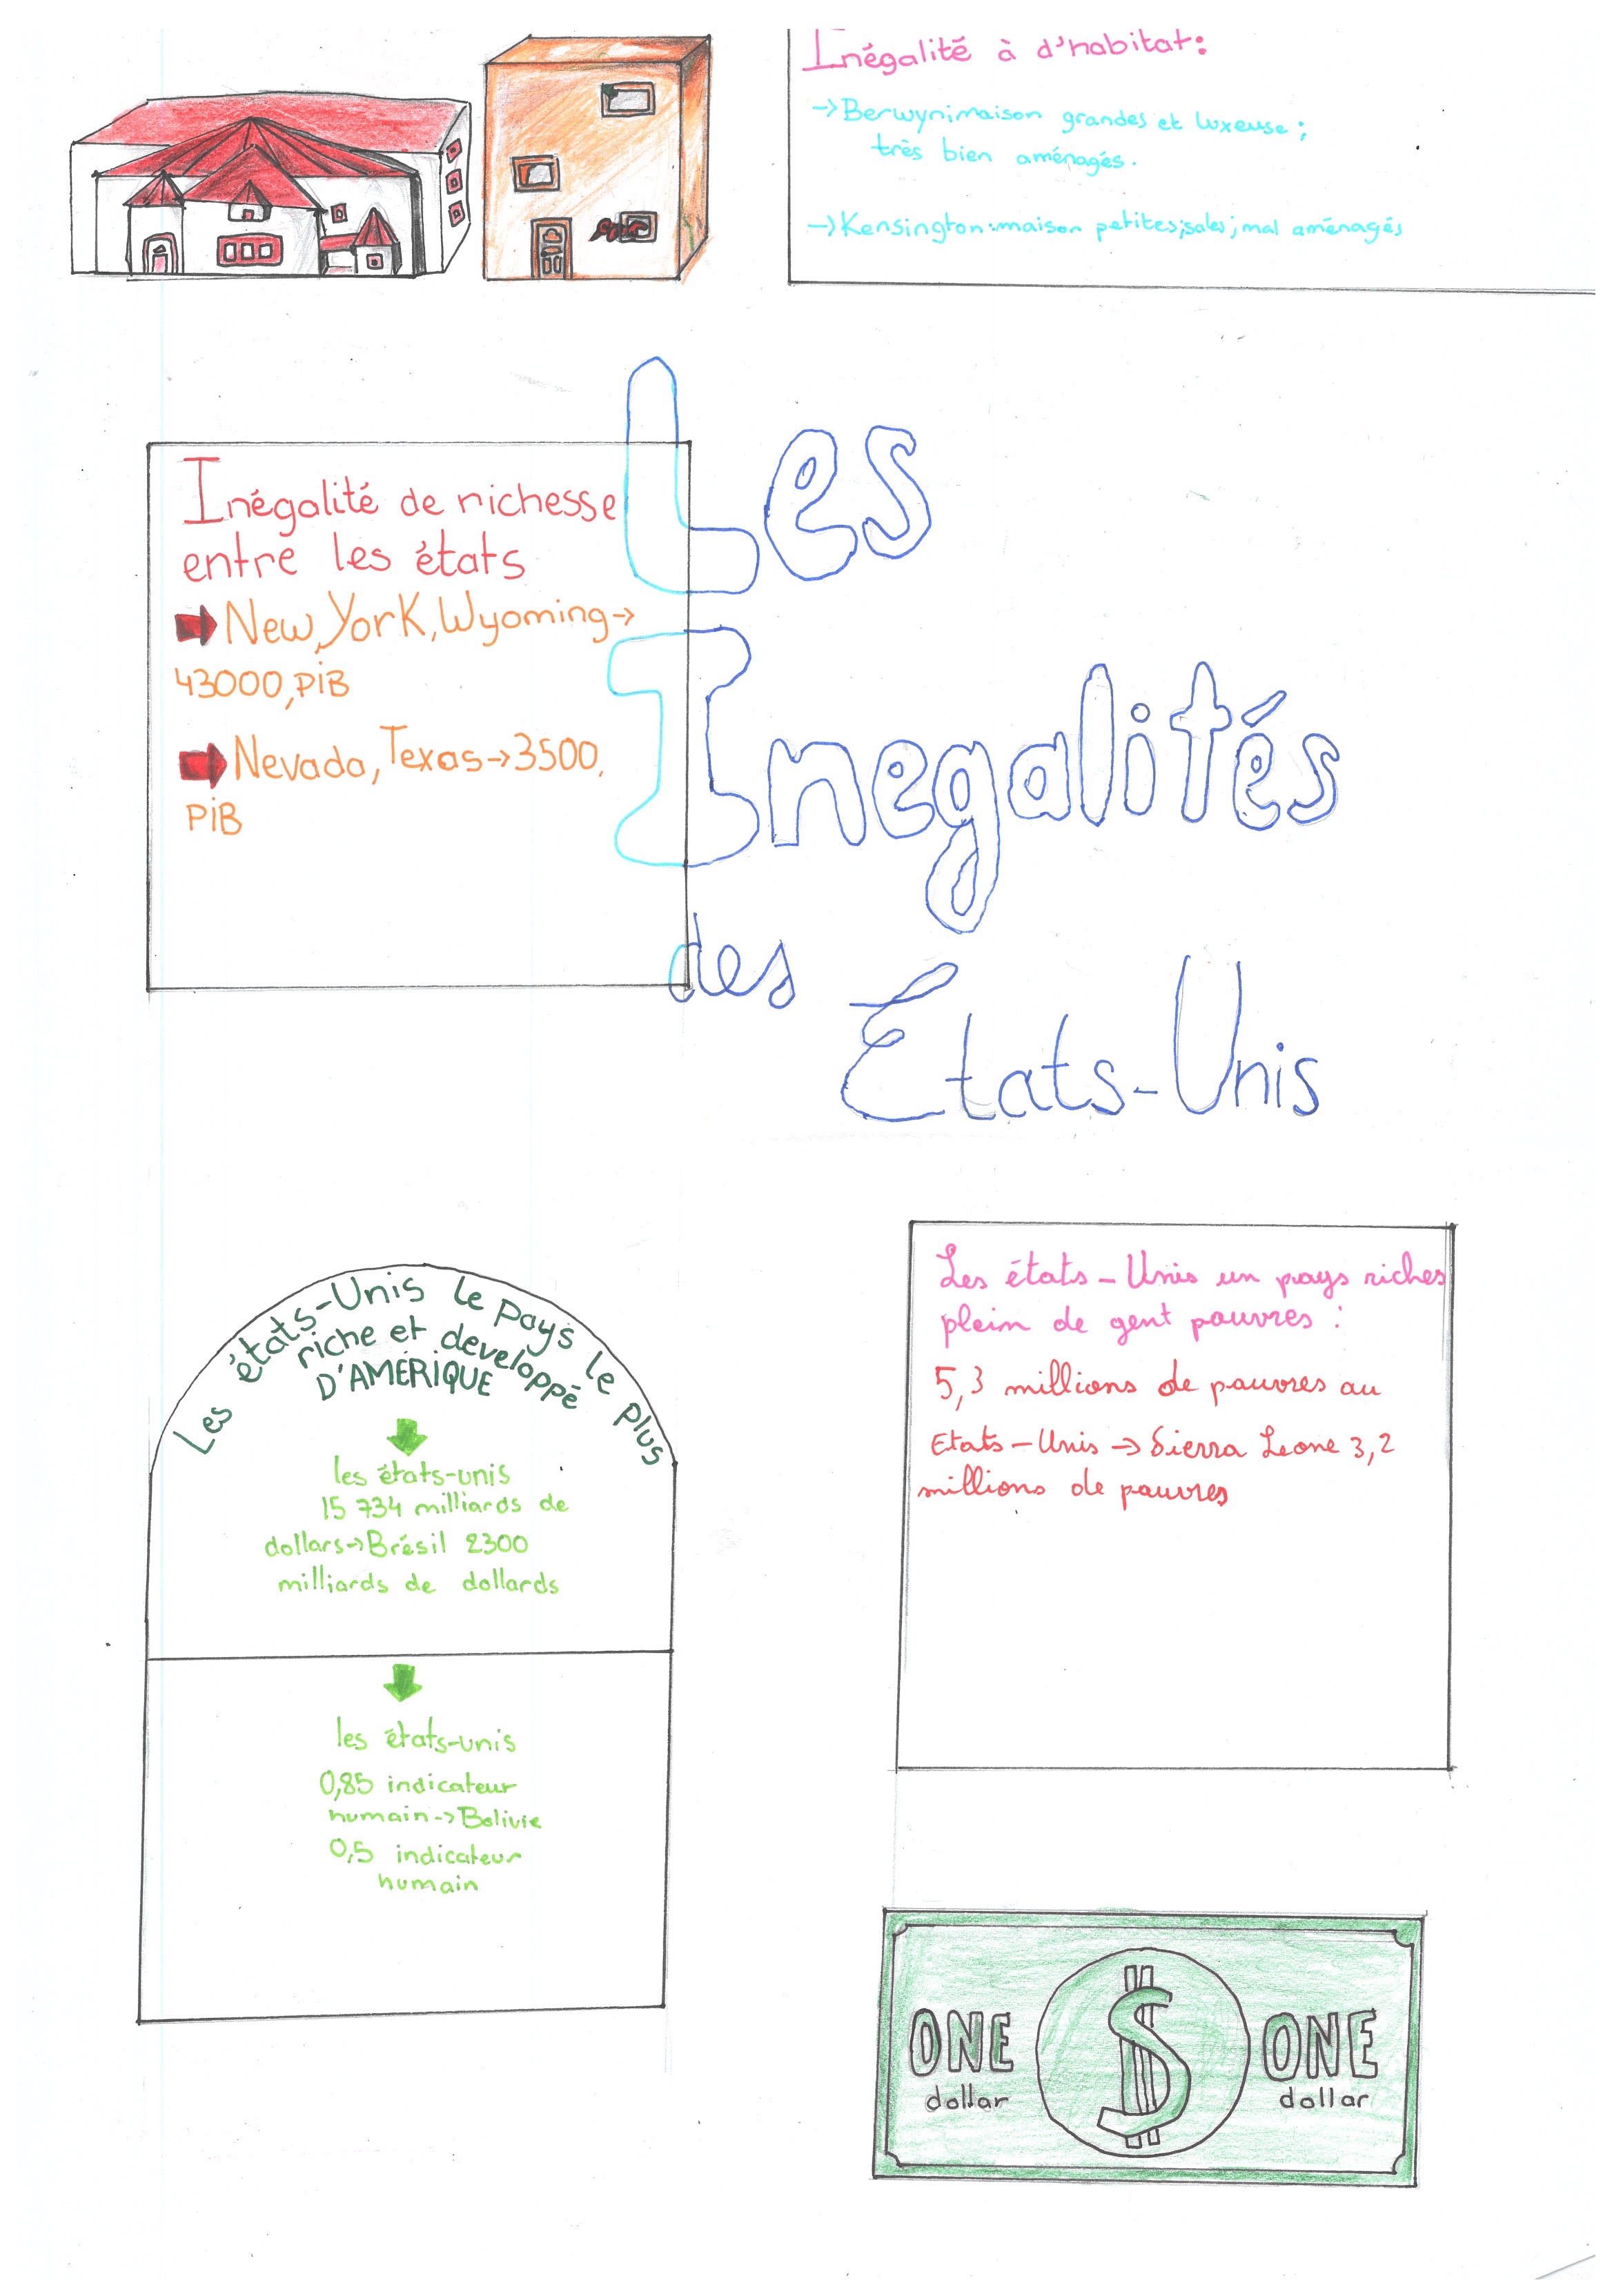 Inégalité à d'habitat:
→Berwyn:maison grandes et luxeuse;
très bien aménagés.
→Kensington:maison petites;sales;mal aménagés
Les
Inegalités
des
États-Unis
Inégalité de richesse
entre les états
New York, Wyoming→
43000,PiB
Nevada, Texas→3500,
PiB
Les états-Unis le pays le plus
riche et developpé
D'AMÉRIQUE
les états-unis
15 734 milliards de
dollars→Brésil 2300
milliards de dollards
les états-unis
0,85 indicateur
humain→Bolivie
0,5 indicateur
humain
Les états-Unis un pays riches
plein de gent pauvres :
5,3 millions de pauvres au
Etats-Unis→Sierra Leone 3,2
millions de pauvres
ONE $ ONE
dollar dollar